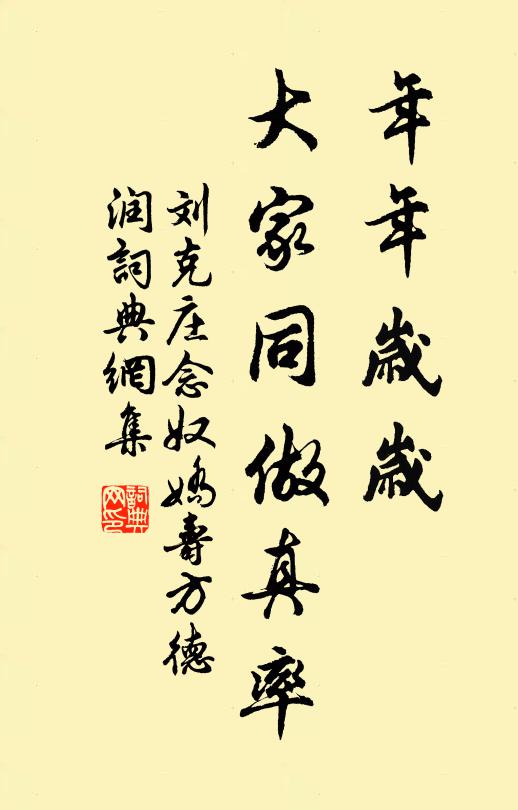 年年歲歲
大家同做真率
刘克庄念奴嬌壽方德
润詞典網集
詞典
网印